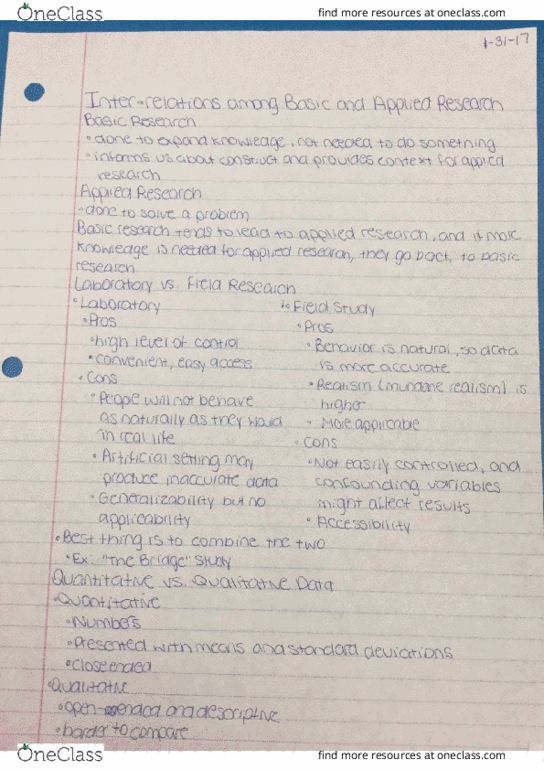 OneClass find more resources at oneclass.com
1-31-17
Inter-relations among Basic and Applied Research
Basic Research
• done to expand knowledge, not needed to do something
• informs us about construct and provides context for applied
research
Applied Research
• done to solve a problem
Basic research tends to lead to applied research, and if more
knowledge is needed for applied research, they go back to basic
research
Laboratory vs. Field Research
• Laboratory
• Pros
• high level of control
• convenient, easy access
• Cons
• People will not behave
as naturally as they would
in real life
• Artificial setting may
produce inaccurate data
• Generalizability but no
applicability
• Field Study
• Pros
• Behavior is natural, so data
is more accurate
• Realism (mundane realism) is
higher
• More applicable
• Cons
• Not easily controlled, and
confounding variables
might affect results
• Accessibility
• Best thing is to combine the two
• Ex. "The Bridge" study
Quantitative vs. Qualitative Data
• Quantitative
• Numbers
• Presented with means and standard deviations
• close ended
• Qualitative
• open-ended and descriptive
• harder to compare
OneClass find more resources at oneclass.com